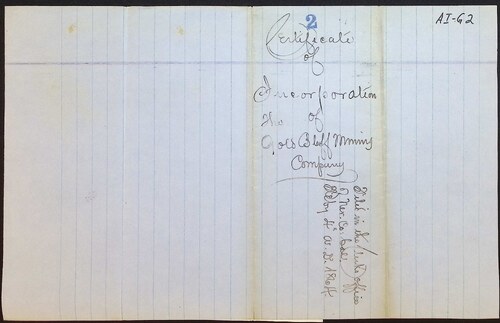 2
AI-G2
Certificate
of
Incorporation
The of
Gold Bluff Mining
Company
Filed in the Clerk's office
Nev. Co. Cal.
Feby 4" A.D.